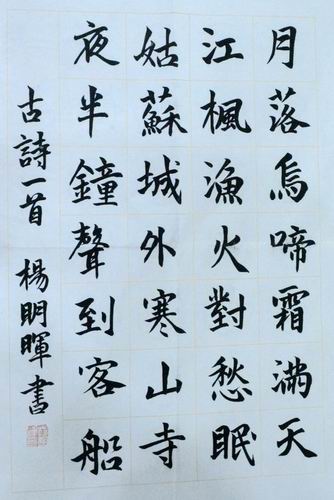 月落烏啼霜滿天
江楓漁火對愁眠
姑蘇城外寒山寺
夜半鐘聲到客船
古詩一首 楊明暉書